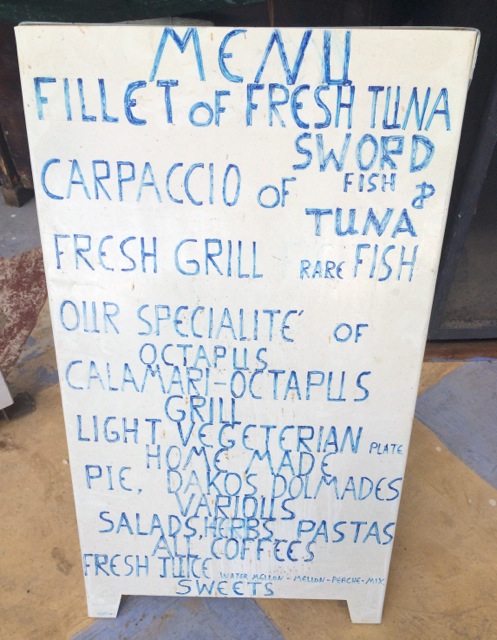 MENU
FILLET OF FRESH TUNA
SWORD
CARPACCIO OF FISH &
TUNA
FRESH GRILL RARE FISH
OUR SPECIALITÉ OF
OCTAPUS
CALAMARI-OCTAPUS
GRILL
LIGHT VEGETERIAN PLATE
HOME MADE
PIE, DAKOS, DOLMADES
VARIOUS
SALADS, HERBS, PASTAS
ALL COFFEES
FRESH JUICE WATER MELLON-MELLON-PEACHE-MIX
SWEETS